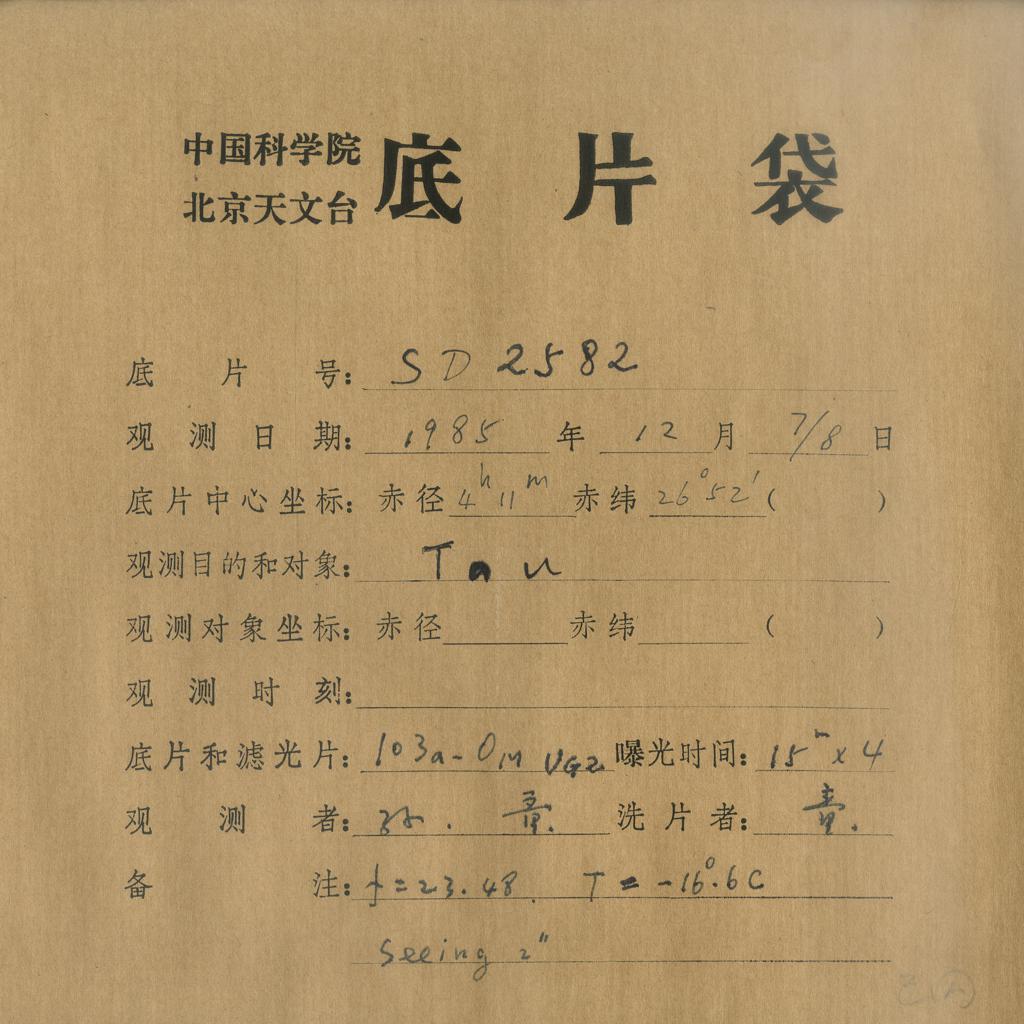 中国科学院
北京天文台 底片袋
底片号: SD 2582
观测日期: 1985 年 12 月 7/8 日
底片中心坐标: 赤径 4h 11m 赤纬 26°52′ ( )
观测目的和对象: Tau
观测对象坐标: 赤径 赤纬 ( )
观测时刻:
底片和滤光片: 103a-O UG2 曝光时间: 15m x 4
观测者: 孙. 洗片者:
备注: f = 23.48 T = -16°.6C
Seeing 2″